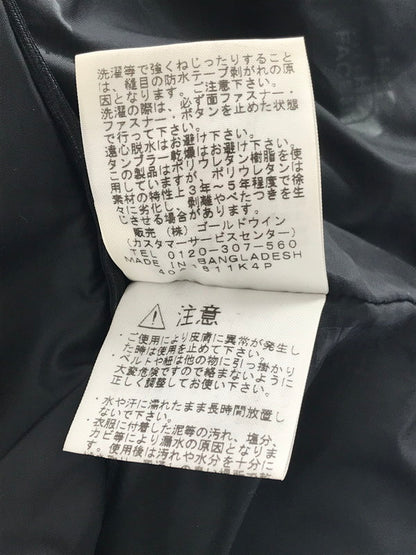 洗濯等で強くねじったりすること
は、縫目の防水テープ剥がれの原
因となります。ご注意下さい。
洗濯の際は、必ず面ファスナー・
ファスナー・ボタンを止めた状態
で行って下さい。
遠心脱水はお避け下さい。
タンブラー乾燥はお避け下さい。
この製品はポリウレタン樹脂を使
用しています。ポリウレタン樹脂は
素材の特性上3年～5年程度で徐
々に劣化し、剥離やべたつきを生
じさせる場合があります。
販売 (株) ゴールドウイン
(カスタマーサービスセンター)
TEL 0120-307-560
MADE IN BANGLADESH
注意
・ご使用により皮膚に異常が発生し
た時は使用を止めて下さい。
・ベルトや紐は他の物に引っ掛かり
大変危険ですので絡まないように
正しく調整してお使い下さい。
・水や汗に濡れたまま長時間放置し
ないで下さい。
・衣服に付着した泥等の汚れ、塩分、
カビ等により漏水の原因となりま
す。使用後は汚れや水分を十分に